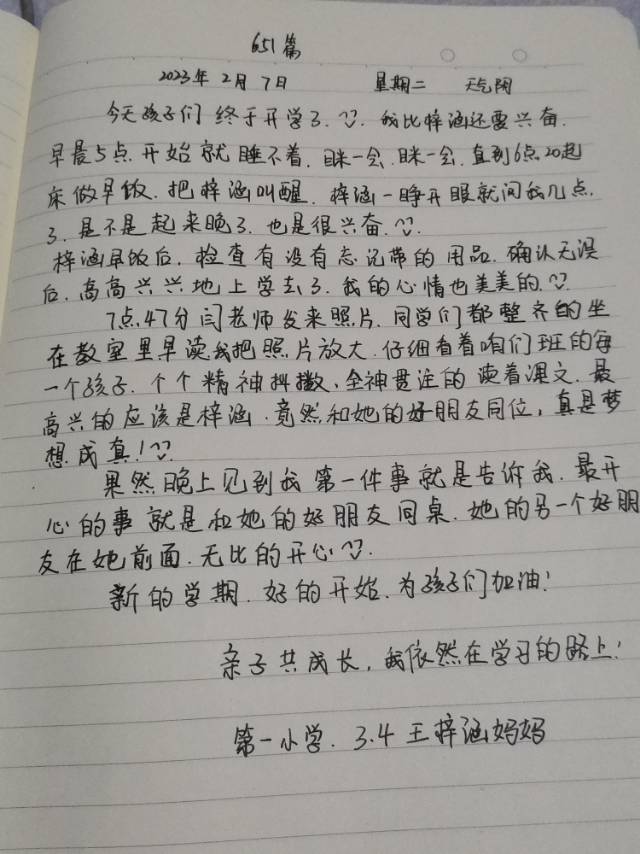 651篇
2023年2月7日 星期二 天气阴
今天孩子们终于开学了. 我比梓涵还要兴奋.
早晨5点开始就睡不着. 眯一会. 眯一会. 直到6点20起
床做早饭. 把梓涵叫醒. 梓涵一睁开眼就问我几点.
了. 是不是起来晚了. 也是很兴奋.
梓涵早饭后. 检查有没有忘记带的用品. 确认无误
后. 高高兴兴地上学去了. 我的心情也美美的.
7点47分闫老师发来照片. 同学们都整齐的坐
在教室里早读. 我把照片放大. 仔细看着咱们班的每
一个孩子. 个个精神抖擞、全神贯注的读着课文. 最
高兴的应该是梓涵. 竟然和她的好朋友同位, 真是梦
想成真!
果然晚上见到我第一件事就是告诉我. 最开
心的事就是和她的好朋友同桌. 她的另一个好朋
友在她前面. 无比的开心.
新的学期. 好的开始. 为孩子们加油!
亲子共成长, 我依然在学习的路上!
第一小学. 3.4 王梓涵妈妈